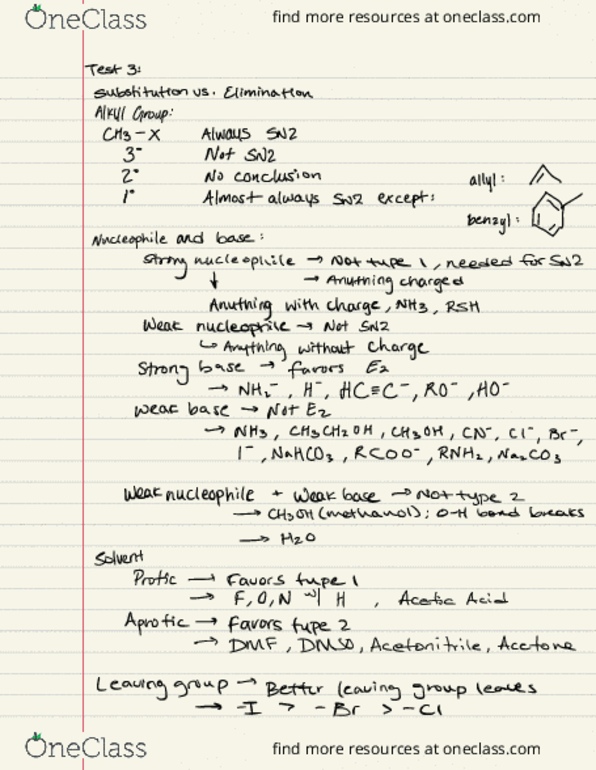 OneClass find more resources at oneclass.com
Test 3:
Substitution vs. Elimination
Alkyl Group:
CH3-X Always SN2
3° Not SN2
2° No conclusion
allyl:
1° Almost always SN2 except:
benzyl:
Nucleophile and base:
Strong nucleophile → Not type 1, needed for SN2
→ Anything charged
↓
Anything with charge, NH3, RSH
Weak nucleophile → Not SN2
↳ Anything without charge
Strong base → favors E2
→ NH2⁻, H⁻, HC≡C⁻, RO⁻, HO⁻
Weak base → Not E2
→ NH3, CH3CH2OH, CH3OH, CN⁻, Cl⁻, Br⁻,
I⁻, NaHCO3, RCOO⁻, RNH2, Na2CO3
Weak nucleophile + Weak base → Not type 2
→ CH3OH (methanol); O-H bond breaks
→ H2O
Solvent
Protic → Favors type 1
→ F,O,N w/ H , Acetic Acid
Aprotic → Favors type 2
→ DMF, DMSO, Acetonitrile, Acetone
Leaving group → Better leaving group leaves
→ -I > -Br > -Cl
OneClass find more resources at oneclass.com